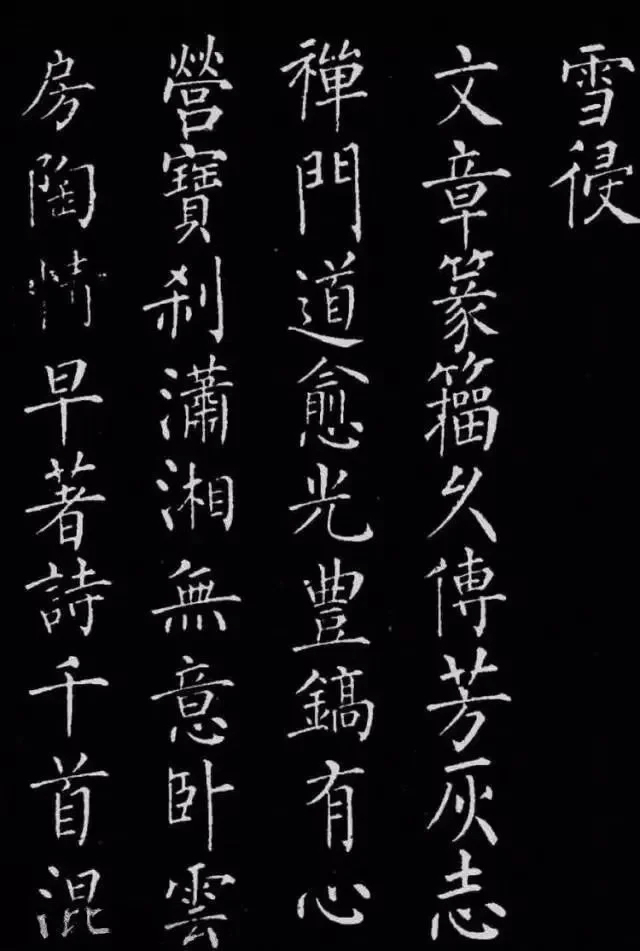 雪侵
文章篆籀久傳芳灰志
禪門道愈光豐鎬有心
營寶刹瀟湘無意卧雲
房陶情早著詩千首混